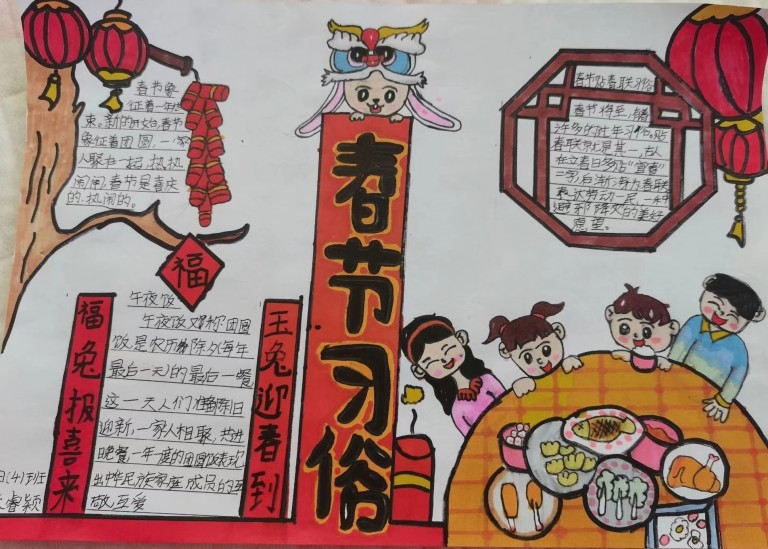 春节象
征着一年结
束。新的开始春节
象征着团圆,一家
人聚在一起,热热
闹闹,春节是喜庆
的.热闹的。
福
春节习俗
春节贴春联习俗
春节将至,有着
许多的过年习俗。贴
春联就是其一,古人
在立春日多贴“宜春”
二字后渐渐为春联
表达劳动人民一种
迎新的美好
愿望。
福兔报喜来
午夜饭
午夜饭又称团圆
饭是农历除夕(每年
最后一天)的最后一餐
这一天人们准备除旧
迎新,一家人相聚,共进
晚餐一年度的团圆饭表现
出中华民族家庭成员的互
敬互爱
玉兔迎春到
(4)班
睿颖